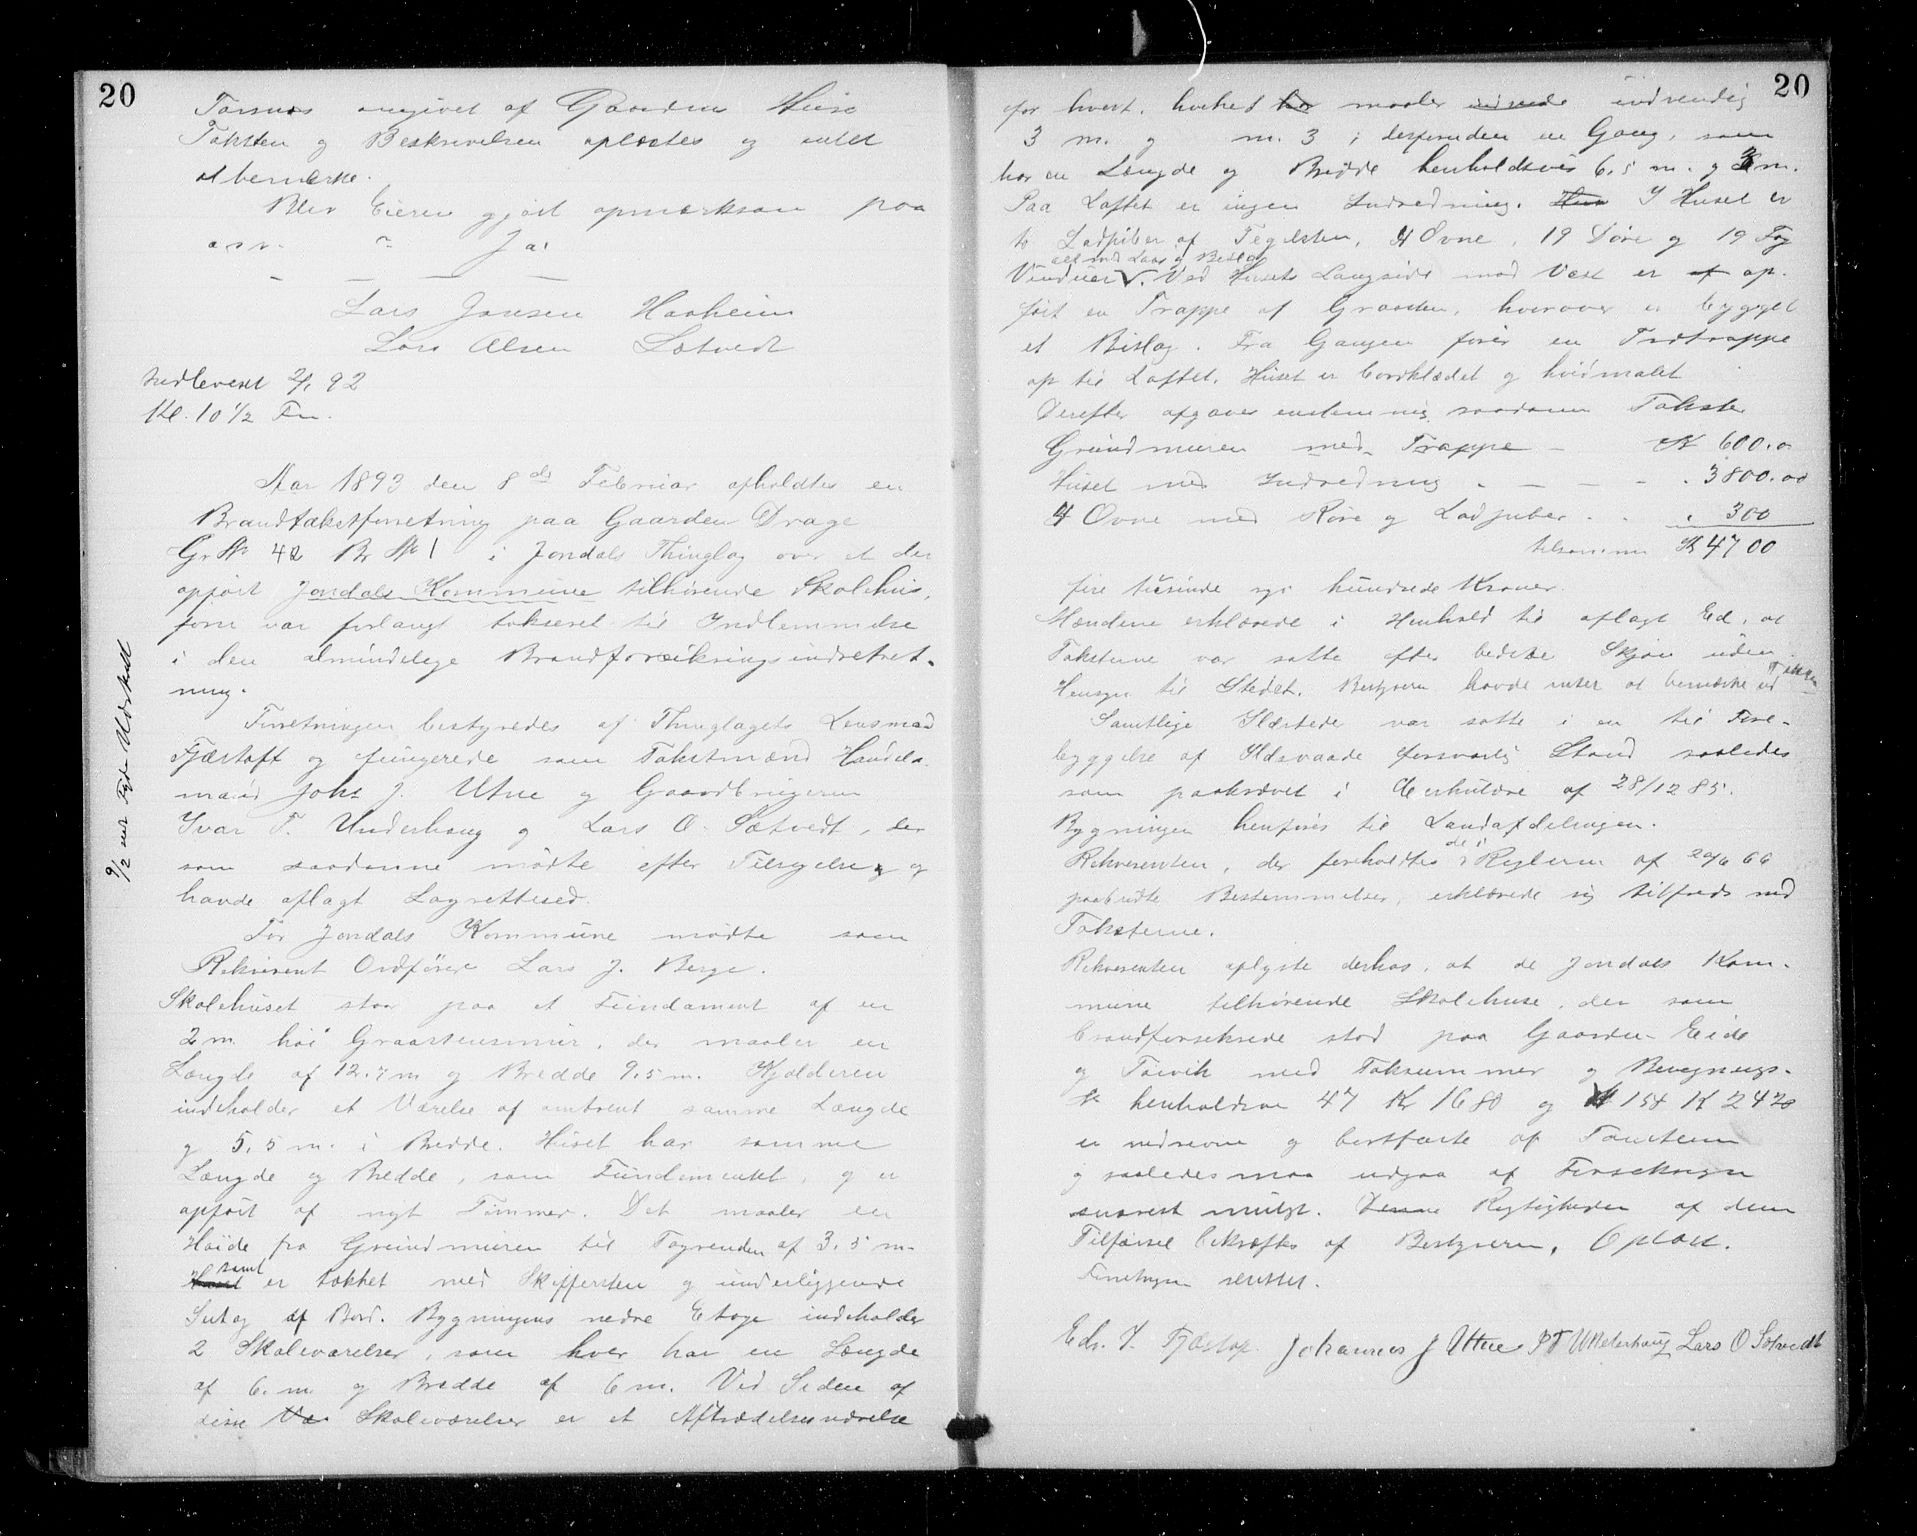 20
Torsnes angivet af Gaardens Huse
Taksten og Beskrivelsen oplæstes og intet
at bemerke.
Blev Eieren gjort opmærksom paa
osv. Ja!
Lars Jansen Haaheim
Lars Olsen Sætvedt
Indleveret 2/1 92
Kl. 10 1/2 Fm.
Aar 1893 den 8de Februar afholdtes en
Brandtakstforretning paa Gaarden Drage
Gr No 42 Br No 1 i Jondals Thinglag over et der
opført Jondals Kommune tilhørende Skolehus,
som var forlangt takseret til Indlemmelse
i den almindelige Brandforsikringsindretret-
ning.
9/2 93 Udskrift
Forretningen bestyredes af Thinglagets Lensmand
Fjærtoft og fungerede som Takstmænd Handels-
mand Johs J. Utne og Gaardbrugerne
Ivar T. Underhaug og Lars O. Sætvedt, der
som saadanne mødte efter Tilsigelse og
havde aflagt Lagrettesed.
For Jondals Kommune mødte som
Rekvirent Ordfører Lars J. Berge.
Skolehuset staar paa et Fundament af en
2 m. høi Graastensmur, der maaler en
Længde af 12.7 m og Bredde 9.5 m. Kjælderen
indeholder et Værelse af omtrent samme Længde
og 5,5 m. i Bredde. Huset har samme
Længde og Bredde, som Fundamentet, og er
opført af nyt Tømmer. Det maaler en
Høide fra Grundmuren til Tagrenden af 3.5 m.
samt
Huset er tækket med Skiffersten og underliggende
Sutag af Bord. Bygningens nedre Etage indeholder
2 Skoleværelser, som hver har en Længde
af 6. m. og Bredde af 6 m. Ved Siden af
disse Væ Skoleværelser er et Aftrædelsesværelse
20
for hvert, hvilket har maaler indvendig
3 m. og m. 3; desforuden en Gang, som
har en Længde og Bredde henholdsvis 6.5 m. og 3 m.
Paa Loftet er ingen Indredning. Hus I Huset er
to Ladpiber af Tegelsten, 4 Ovne, 19 Døre og 19 Fag
alt med Laas og Beslag
Vinduer. Ved Husets Langside mod Vest er af op-
ført en Trappe af Graasten, hvorover er bygget
et Bislag. Fra Gangen fører en Trætrappe
op til Loftet. Huset er bordklædet og hvidmalet
Derefter afgaves enstemmig saadanne Takster
Grundmuren med Trappe - Kr 600.0
Huset med Indredning - - - - 3800.00
4 Ovne med Røre og Ladpiber . . 300
tilsammen Kr 4700
fire tusinde syv hundrede Kroner.
Mændene erklærede i Henhold til aflagt Ed, at
Taksterne var satte efter bedste Skjøn uden
Hensyn til Stedet. Bestyreren havde intet at bemærke ved Taksten
Samtlige Ildsteder var satte i en til Fore-
byggelse af Ildsvaade forsvarlig Stand saaledes
som paakrævet i Cirkulære af 28/12 85.
Bygningen henføres til Landafdelingen.
Rekvirenten, der foreholdtes de i Reglerne af 20/6 66
paabudte Bestemmelser, erklærede sig tilfreds med
Taksterne.
Rekvirenten oplyste derhos, at de Jondals Kom-
mune tilhørende Skolehuse, der som
brandforsikrede stod paa Gaarden Eide
og Torvik med Taksummer og Bevægnings-
No henholdsvis 47 Kr 1680 og 154 Kr 2420
er nedrevne og bortførte af Tomterne
og saaledes maa udgaa af Forsikringen
snarest muligt. Denne Rigtigheden af denne
Tilførsel bekræftes af Bestyreren. Oplæst.
Forretningen sluttet.
Edv. I. Fjærtoft. Johannes J Utne I T Underhaug Lars O Sætvedt